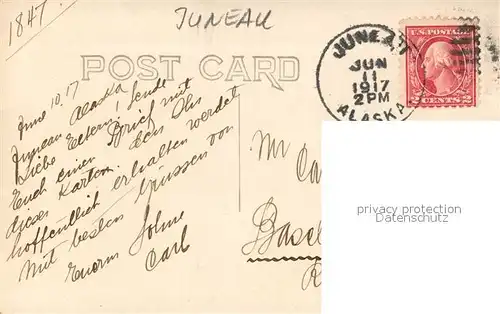 1847.
JUNEAU
POST CARD
JUNEAU
JUN
11
1917
2 PM
ALASKA
U.S. POSTAGE
2 CENTS 2
June 10, 17
Juneau Alaska
Liebe Eltern! Sende
Euch einen Brief mit
dieser Karten. den Ihr
hoffentlich erhalten werdet
Mit besten Grüssen von
Euerm Sohne
Carl
Mr
Ca
Basel
privacy protection
Datenschutz